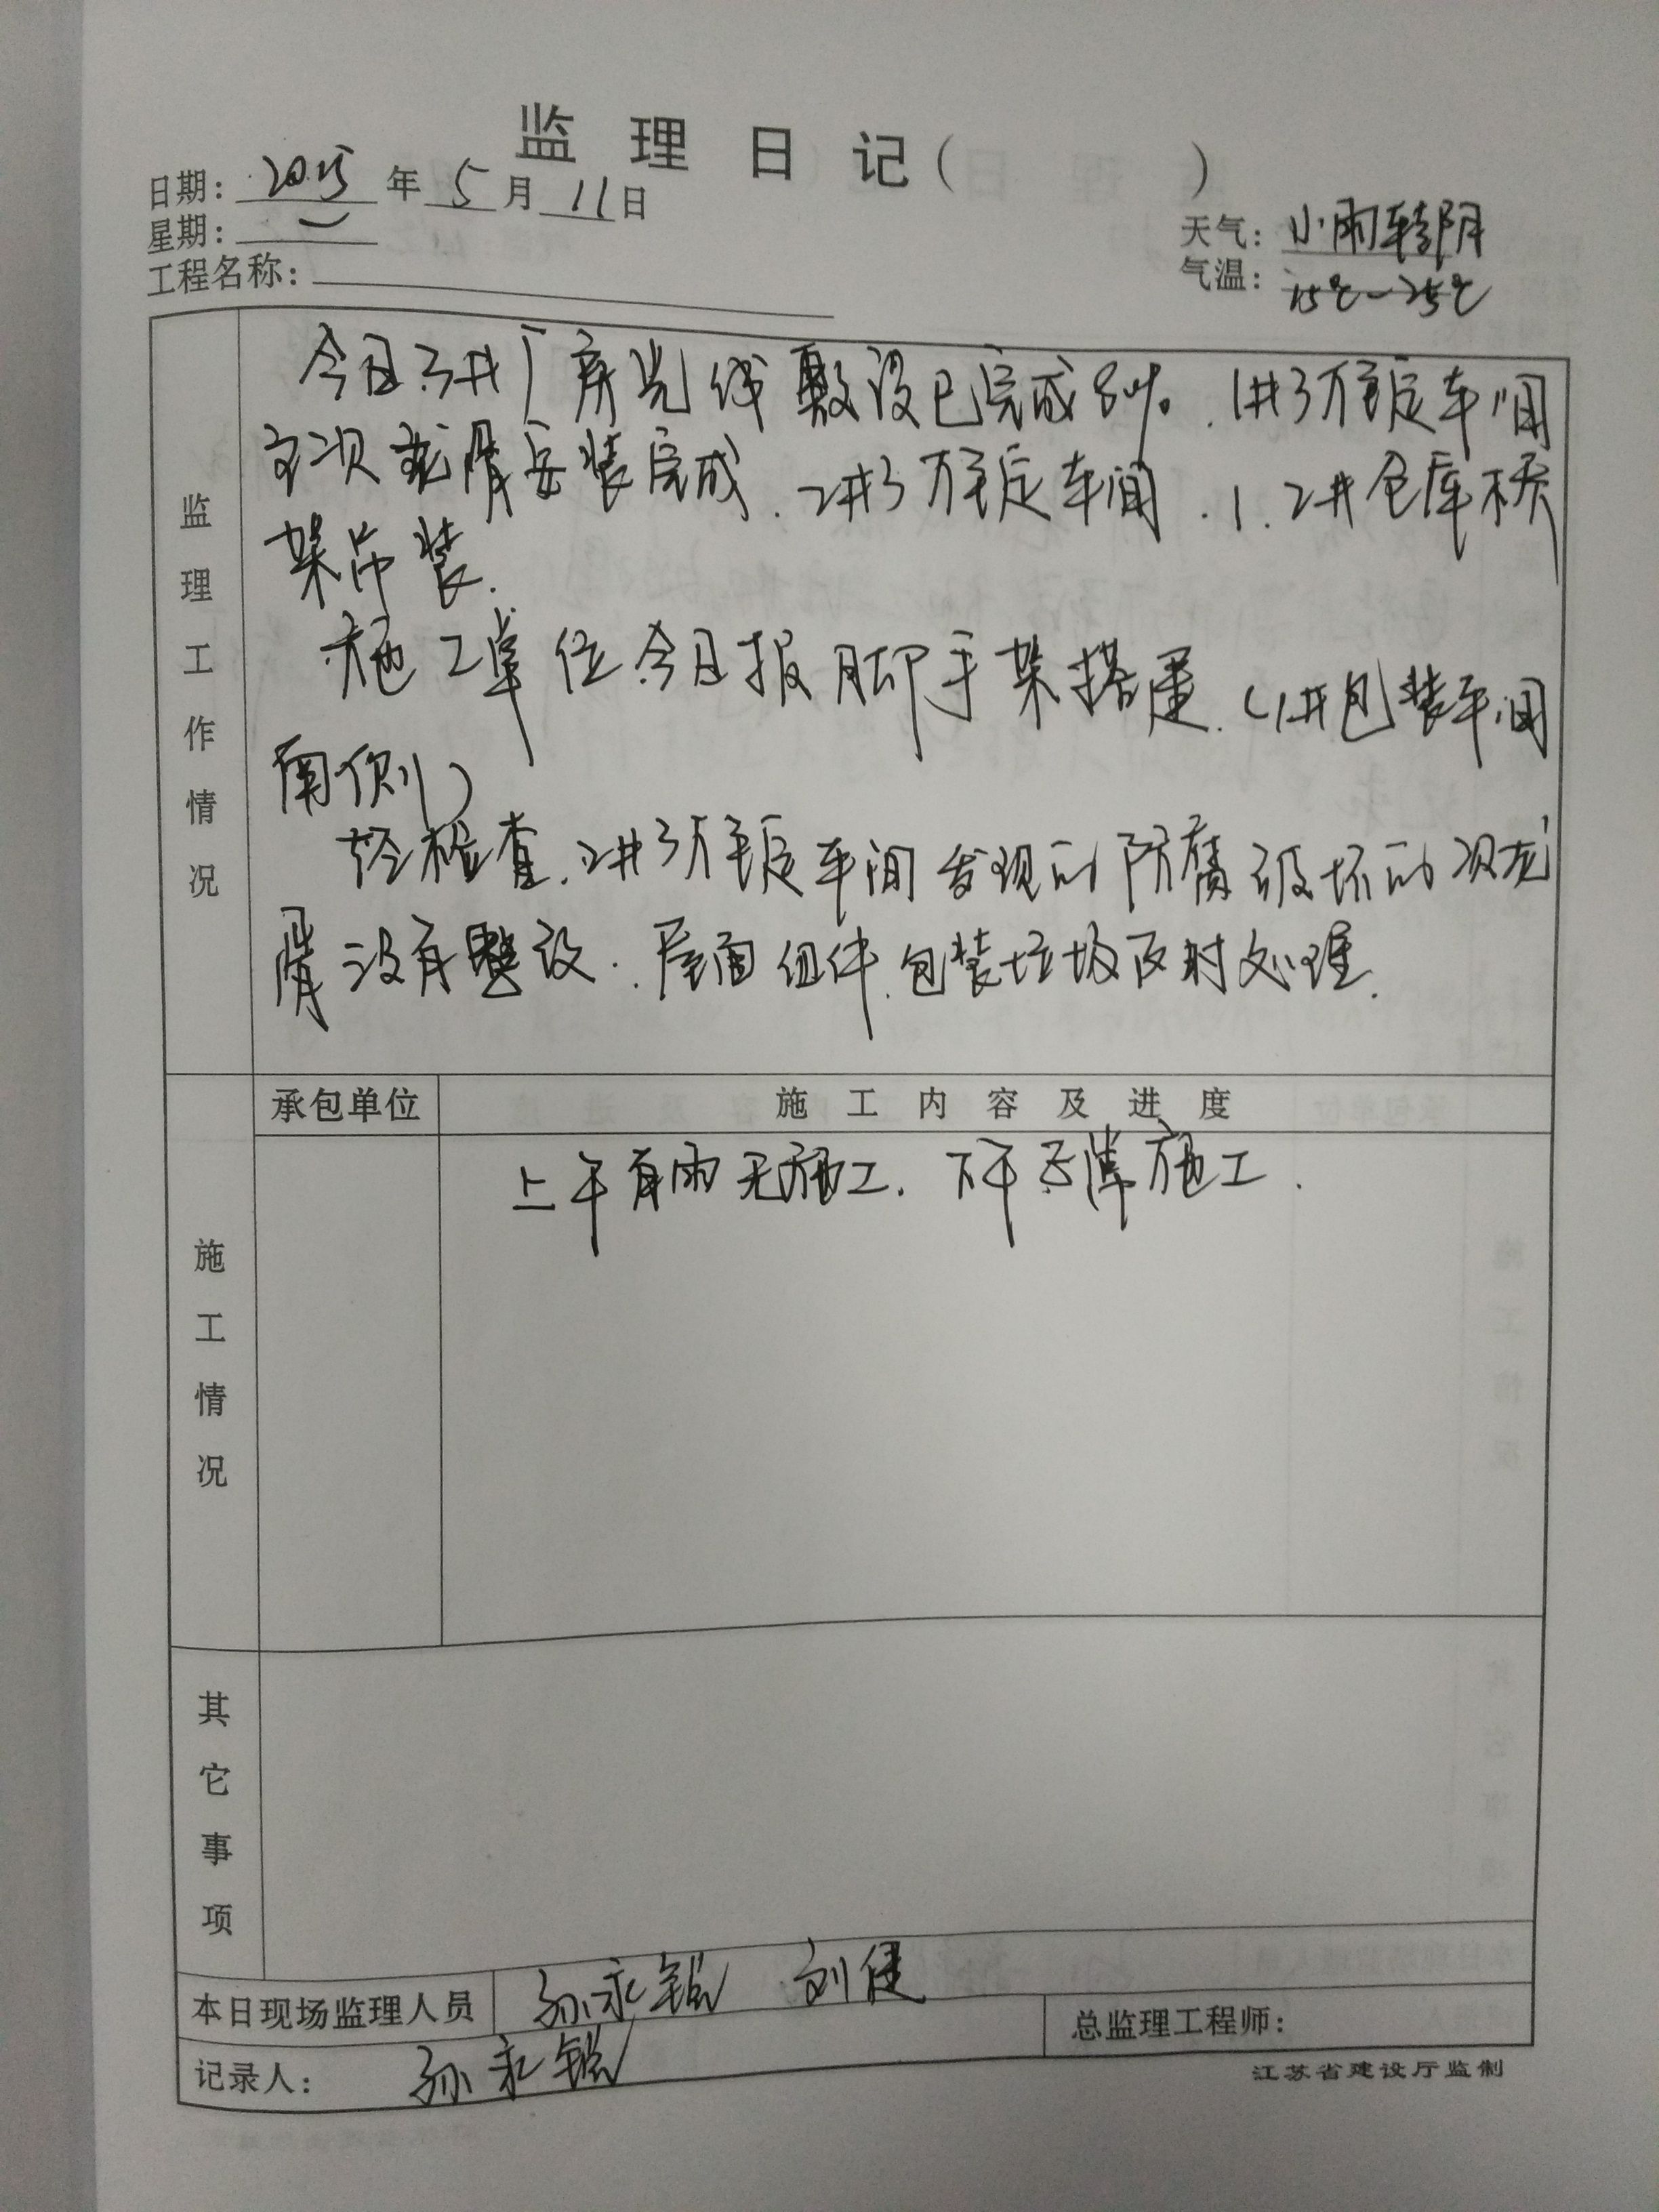 监理日记（ ）
日期：2015年5月11日
星期：一
天气：小雨转阴
工程名称：
气温：15℃-25℃
监理工作情况
今日3#厂房光缆敷设已完成80%。1#3万锭车间
主次龙骨安装完成、2#3万锭车间、1、2#仓库桥
架吊装.
施工单位今日报脚手架搭建.（1#包装车间
南侧）
经检查、2#3万锭车间发现的防腐破坏的次龙
骨没有整改.屋面组件包装垃圾及时处理.
承包单位 施工内容及进度
施工情况
上午有雨无施工.下午正常施工.
其它事项
本日现场监理人员 孙永锐 刘健
总监理工程师：
记录人：孙永锐
江苏省建设厅监制